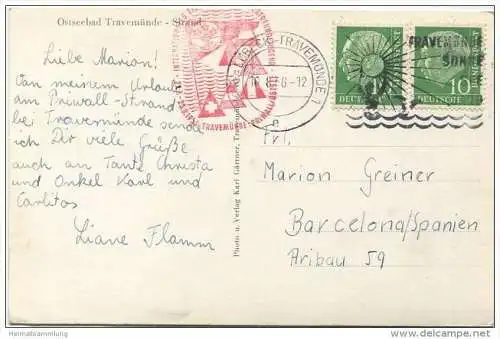 Ostseebad Travemünde - Strand
Liebe Marion!
Von meinem Urlaub
am Priwall-Strand
bei Travemünde sende
ich Dir viele Grüße
auch an Tante Christa
und Onkel Karl und
Carlitos
Liane Flamm
Photo u. Verlag Karl Gärtner, Travemünde
TRAVEMÜNDE 1
-6-12
TRAVEMÜNDE-PRIWALL/OSTSEE
TRAVEMÜNDE
SONNE
DEUTSCHE BUNDESPOST
10
Frl.
Marion Greiner
Barcelona/Spanien
Aribau 59
Heimatsammlung
www.delcampe.net